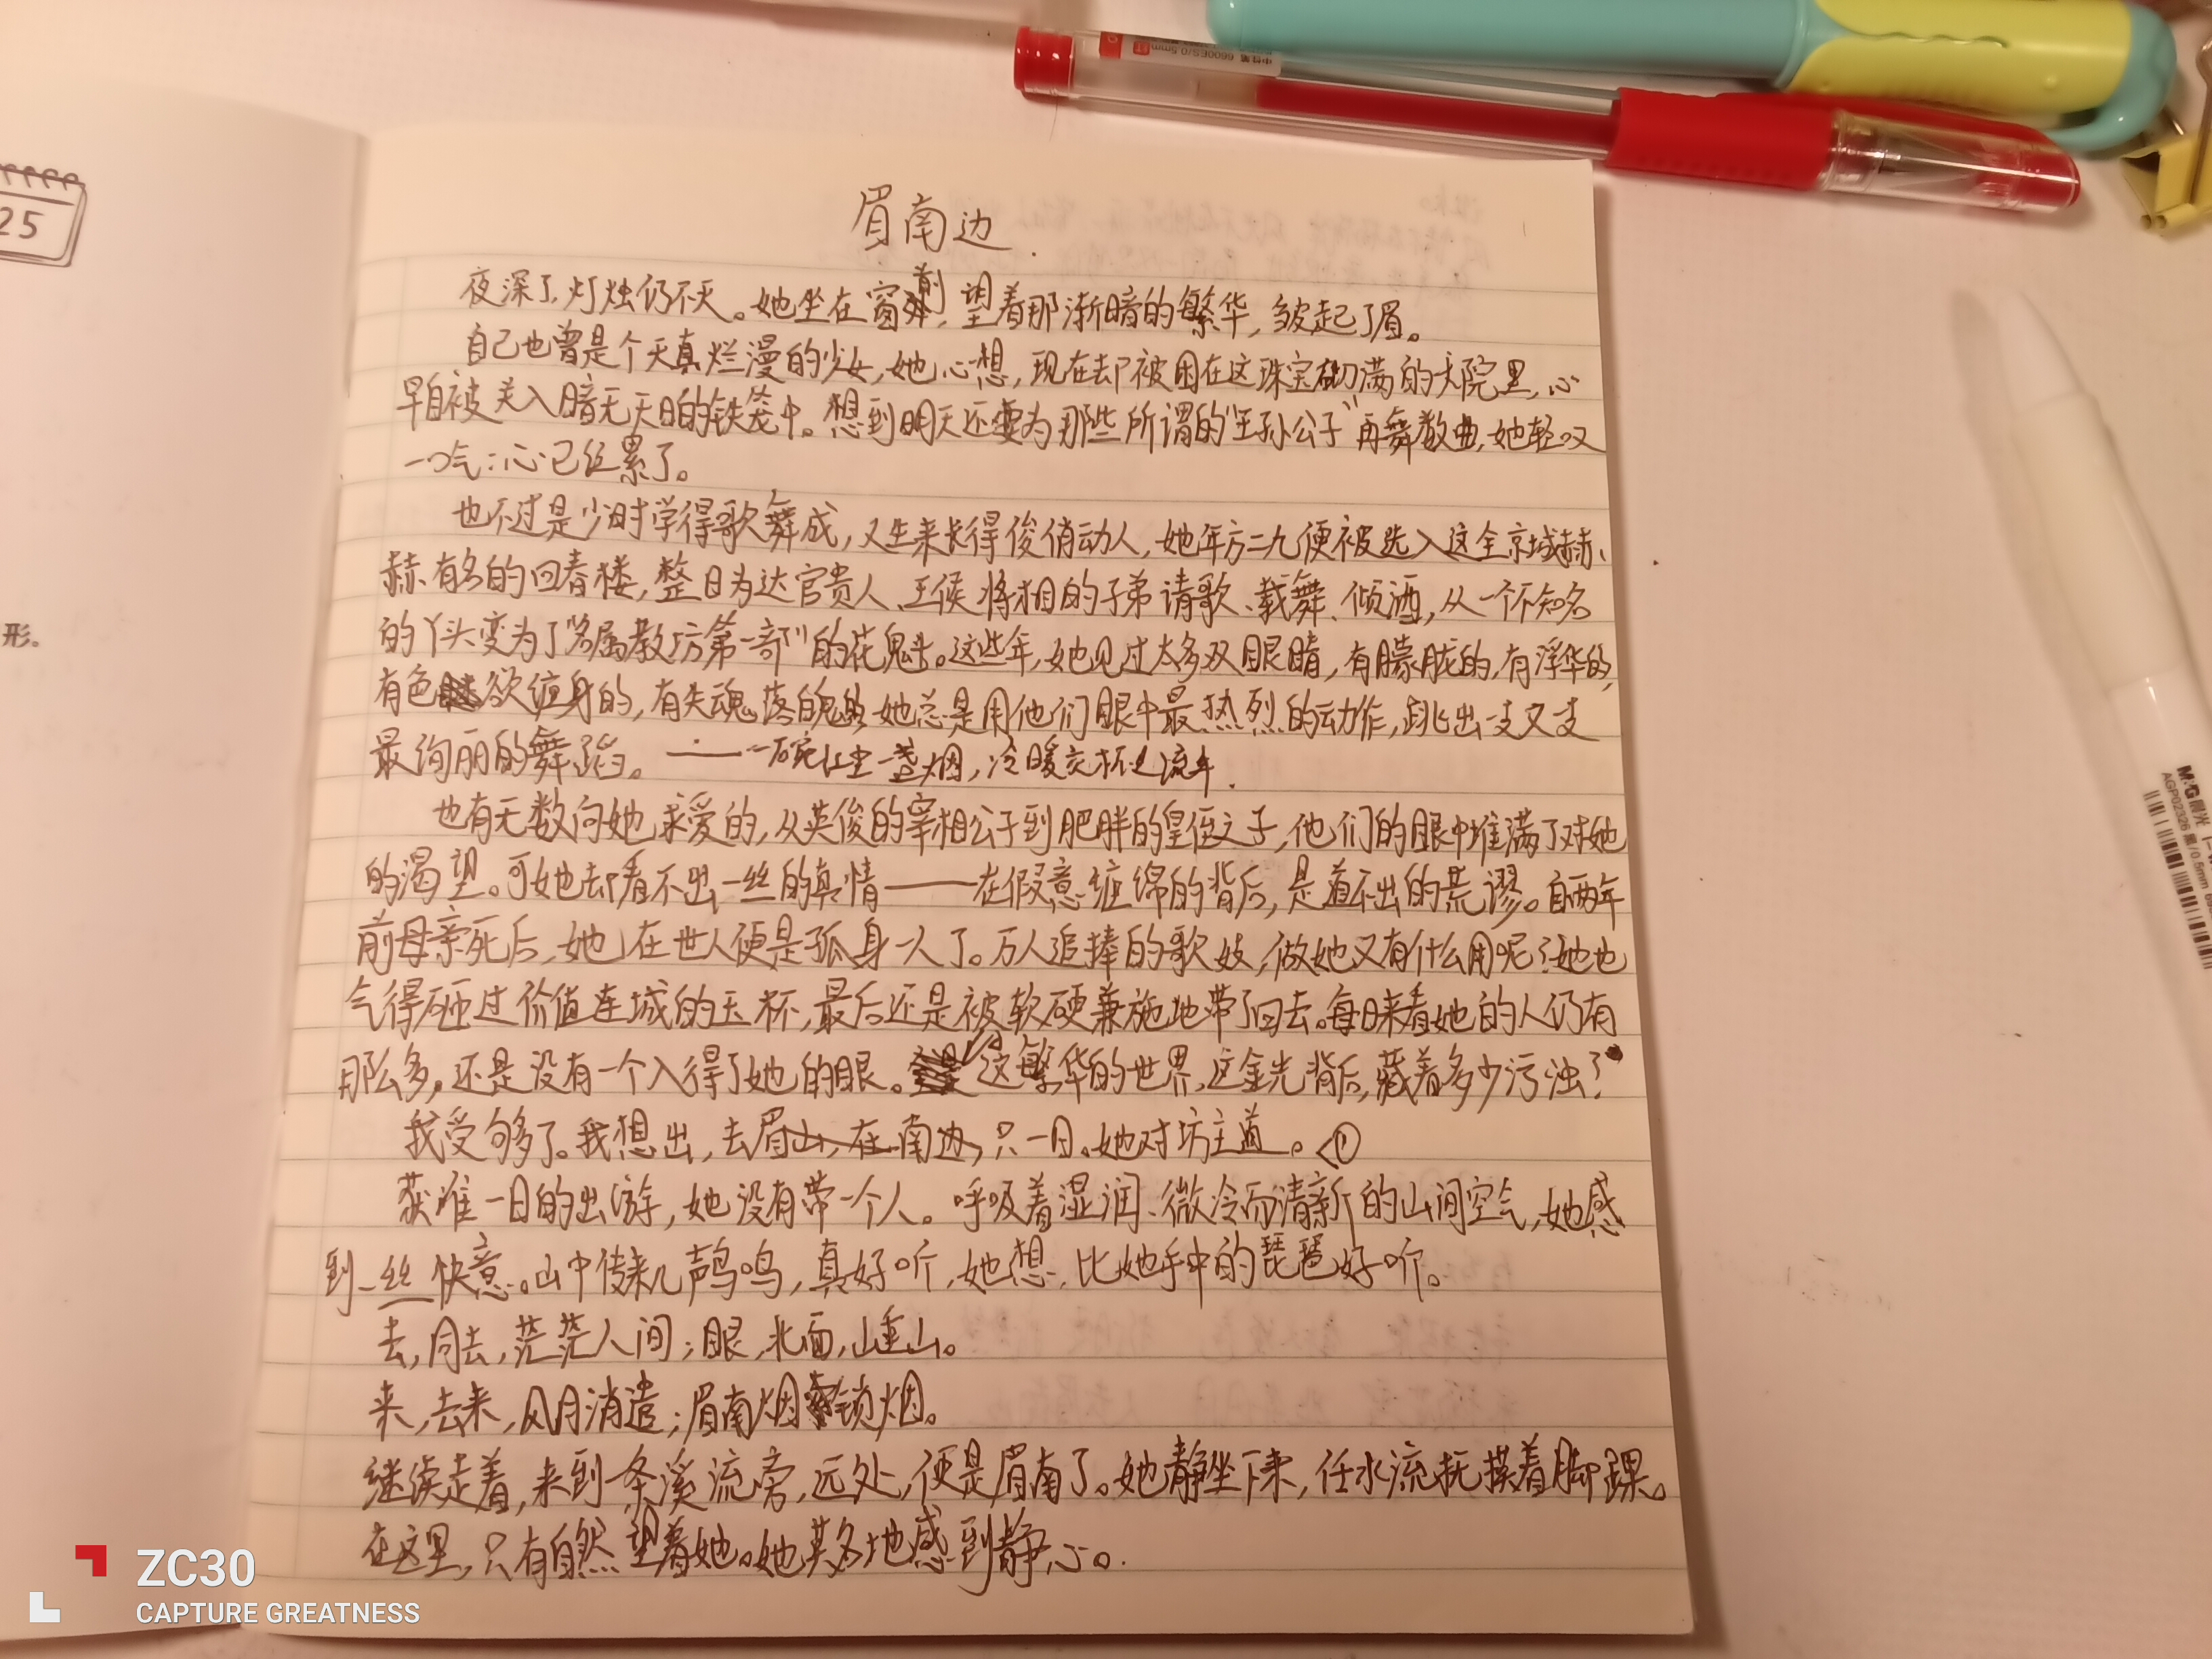 25
形。
眉南边
夜深了，灯烛仍不灭。她坐在窗前，望着那渐暗的繁华，皱起了眉。
自己也曾是个天真烂漫的少女，她心想，现在却被困在这珠宝砌满的大院里，心
早自被关入暗无天日的铁笼中。想到明天还要为那些所谓的“王孙公子”再舞数曲，她轻叹
一口气：心已经累了。
也不过是少时学得歌舞成，又生来长得俊俏动人，她年方二九便被选入这全京城赫
赫有名的回春楼，整日为达官贵人、王侯将相的子弟请歌、载舞、倾酒，从一个不知名
的丫头变为了“名属教坊第一部”的花魁。这些年，她见过太多双眼睛，有朦胧的，有浮华的，
有色欲缠身的，有失魂落魄的。她总是用他们眼中最热烈的动作，跳出一支又一支
最绚丽的舞蹈。——一碗红尘一盏烟，冷暖交杯过流年.
也有无数向她求爱的，从英俊的宰相公子到肥胖的皇侄之子，他们的眼中堆满了对她
的渴望。可她却看不出一丝的真情——在假意缠绵的背后，是道不出的荒谬。自两年
前母亲死后，她在世人便是孤身一人了。万人追捧的歌妓，做她又有什么用呢？她也
气得砸过价值连城的玉杯，最后还是被软硬兼施地带了回去。每日来看她的人仍有
那么多，还是没有一个入得了她的眼。这繁华的世界，这金光背后，藏着多少污浊？
我受够了。我想出，去眉山，在南边，只一日。她对坊主道。①
获准一日的出游，她没有带一个人。呼吸着湿润、微冷而清新的山间空气，她感
到一丝快意。山中传来几声鸟鸣，真好听，她想，比她手中的琵琶好听。
去，同去，茫茫人间；眼，北面，山重山。
来，去来，风月消遣；眉南烟锁烟。
继续走着，来到一条溪流旁，远处，便是眉南了。她静坐下来，任水流抚摸着脚踝。
在这里，只有自然望着她。她莫名地感到静心。
中性笔 6600ES/0.5mm
M&G晨光
AGP02326 黑/0.5mm
ZC30
CAPTURE GREATNESS